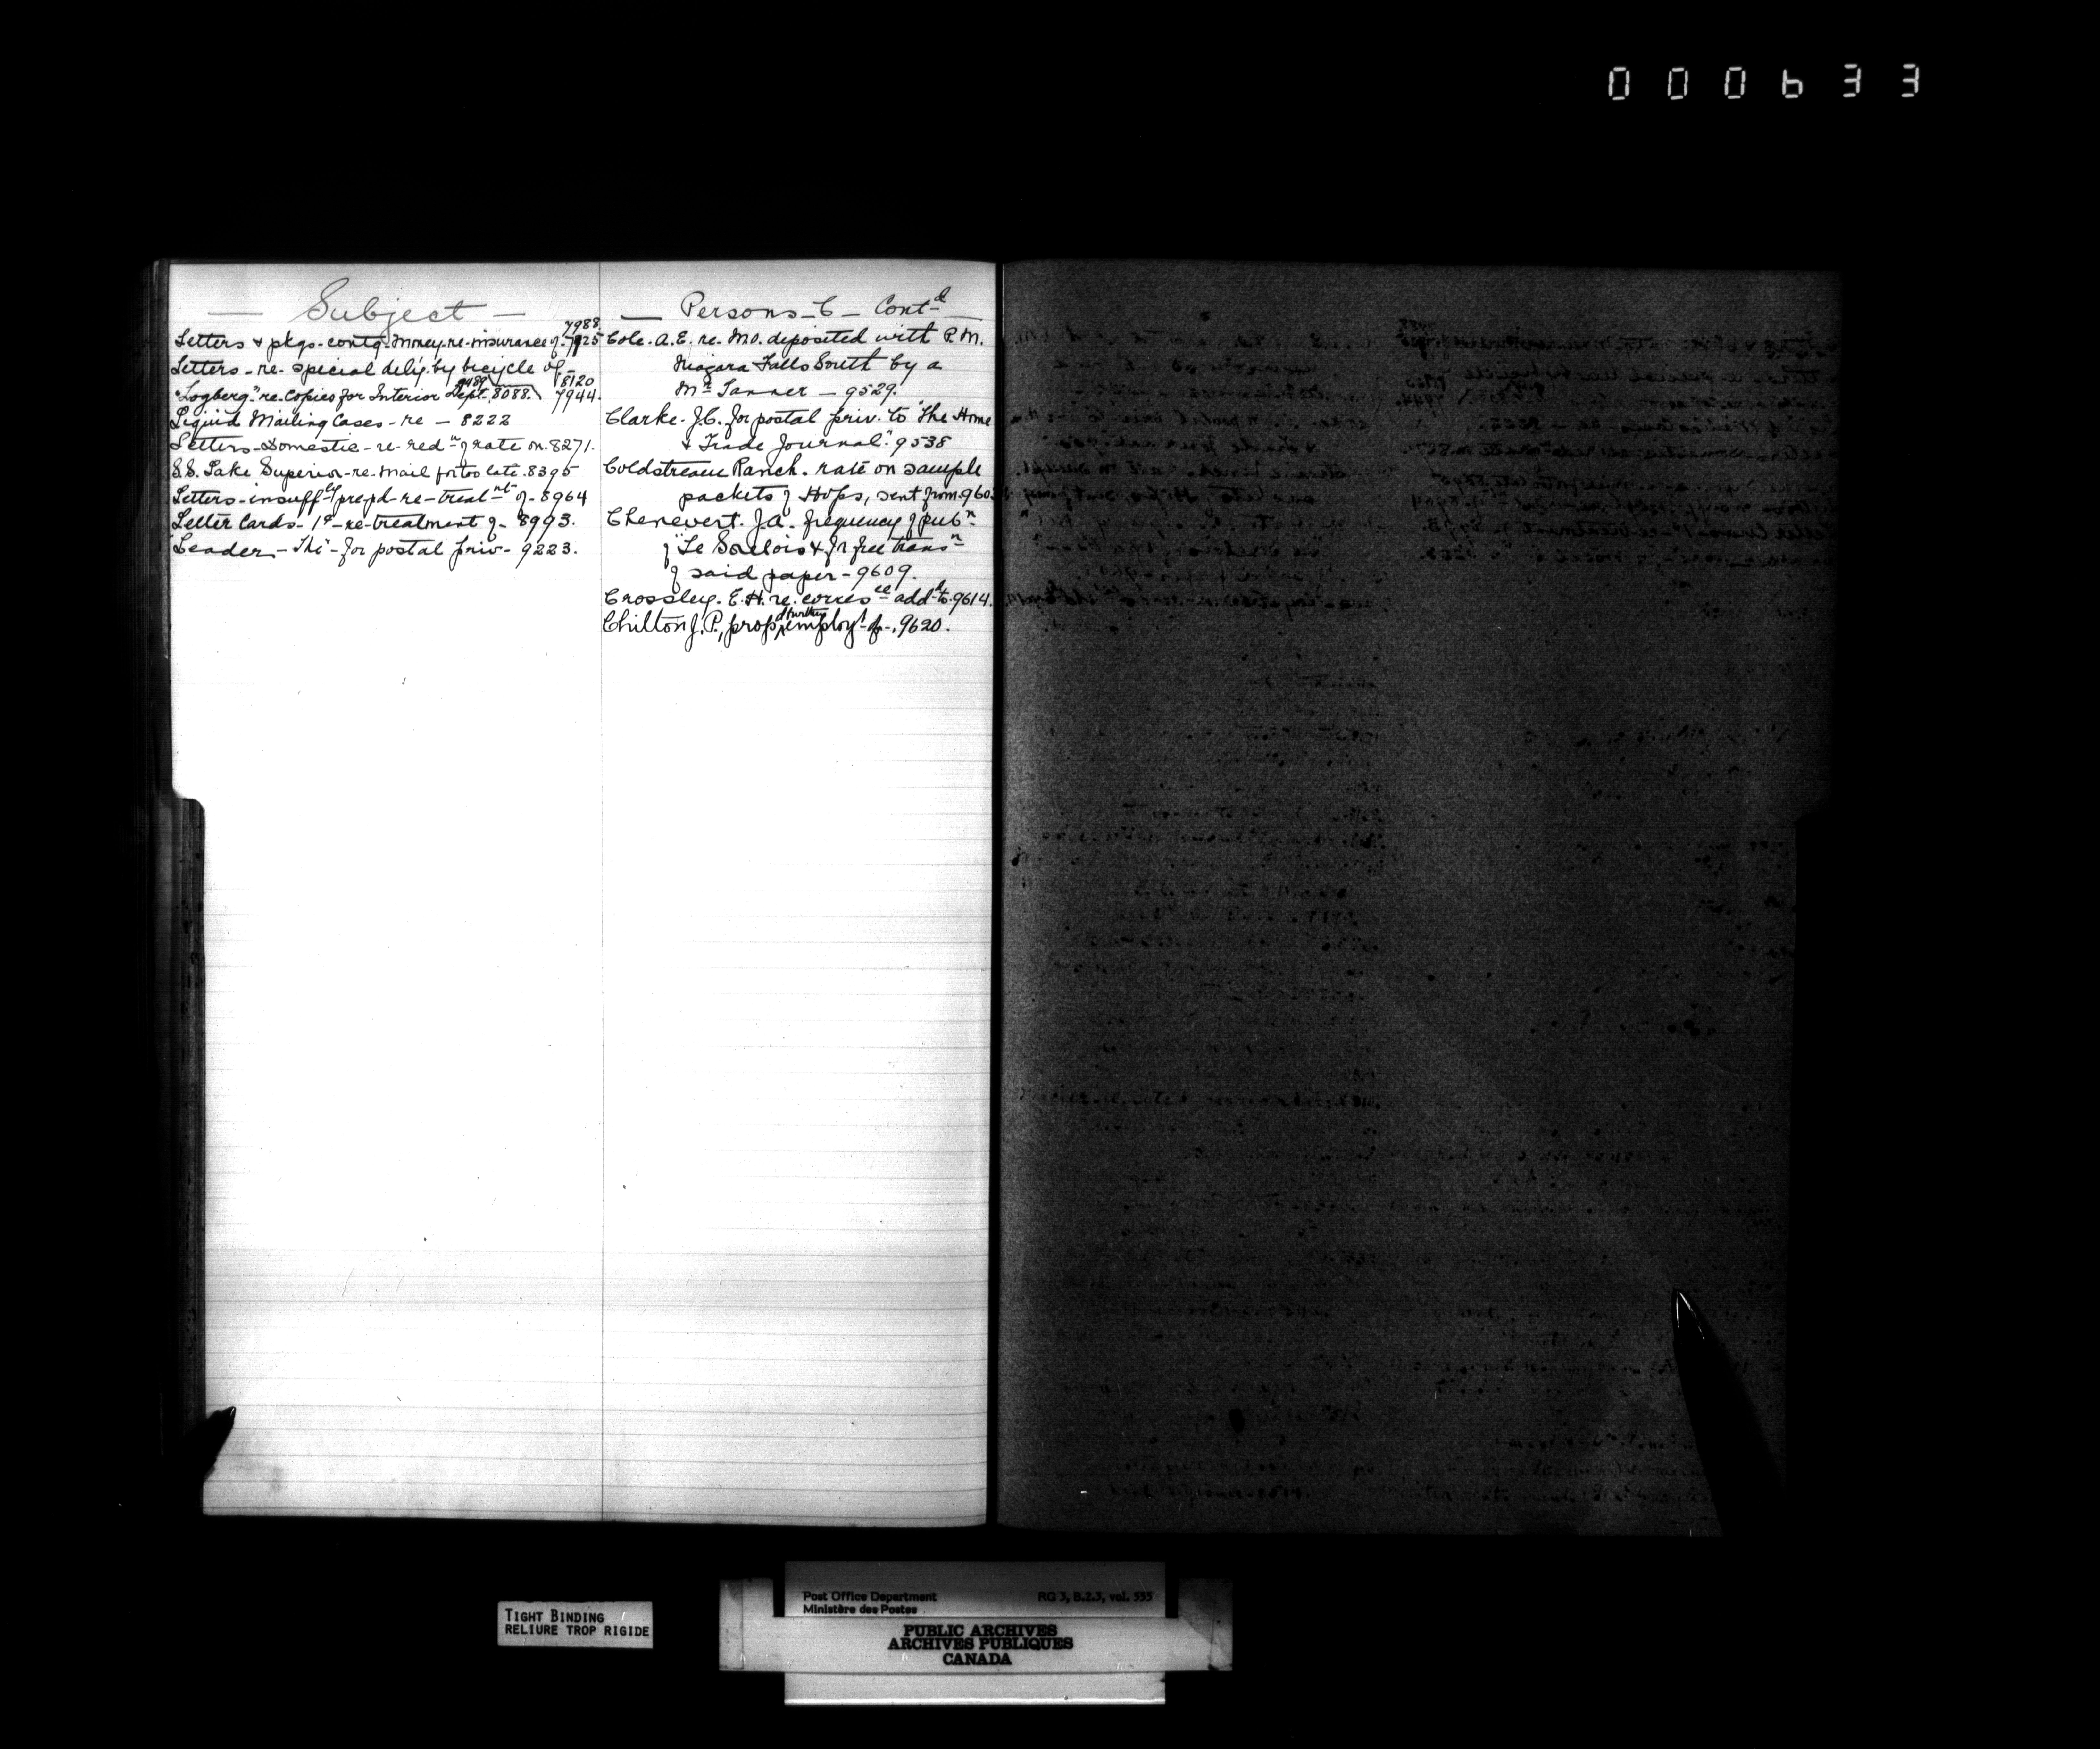 000633
— Subject —
7988
Letters & pkgs-contg-Money-re-insurance of-7925
Letters-re-special deliy. by bicycle of-
8120
"Logberg"-re-Copies for Interior Dept. 8088. 7944.
Liquid Mailing Cases-re — 8222
Letters-Domestic-re-redn of rate on. 8271.
S.S. Lake Superior-re-Mail for too late. 8395
Letters-insuffly prepd-re-treatnt of-8964
Letter Cards-1¢-re-treatment of-8993.
"Leader-The"-for postal priv-9223.
— Persons — C — Contd —
Cole. A.E. re. M.O. deposited with P.M.
Niagara Falls South by a
Mr Tanner — 9529.
Clarke. J.C. for postal priv. to "The Home
& Trade Journal." 9538
Coldstream Ranch. rate on sample
packets of Hops, sent from. 960
Chenevert. J.A. frequency of pubn
of "Le Sorelois & for free transn
of said paper-9609.
Crossley. E.H. re. corresce addd to. 9614.
Chilton J.P., propd further employt of-. 9620.
TIGHT BINDING
RELIURE TROP RIGIDE
Post Office Department RG 3, B.2.3, vol. 555
Ministère des Postes
PUBLIC ARCHIVES
ARCHIVES PUBLIQUES
CANADA